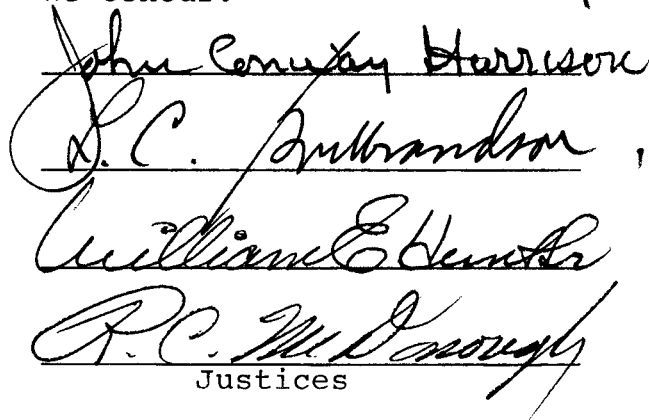 We concur:
John Conway Harrison
L. C. Gulbrandson
William E Hunt Sr
R. C. McDonough
Justices